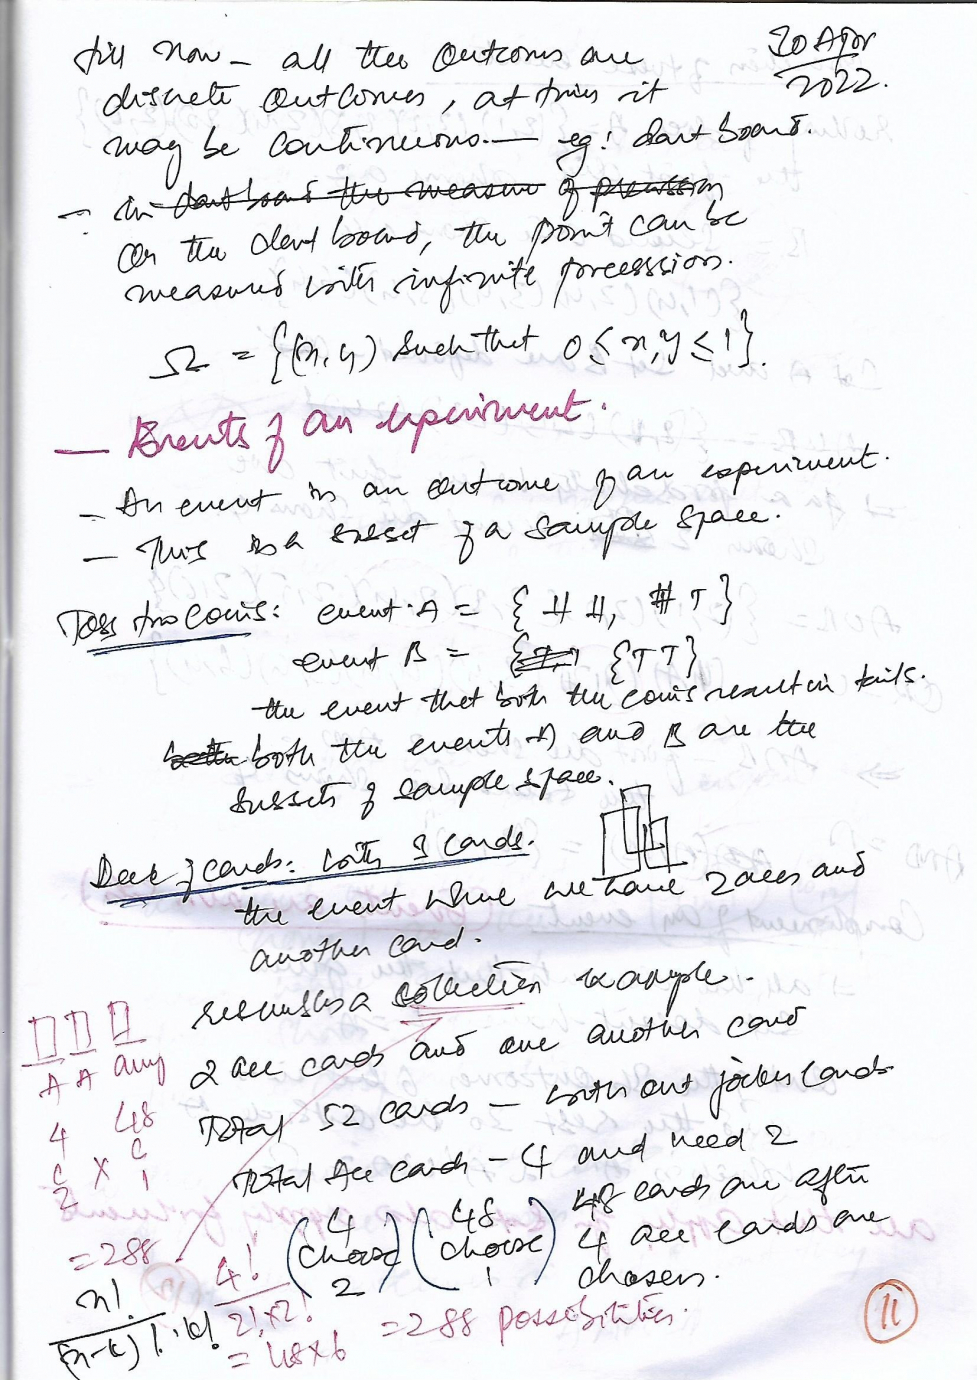 till now - all the outcomes are
20 Apr
2022.
discrete outcomes, at times it
may be continuous. — eg: dart board.
- in dart board the measure of precission
On the dart board, the point can be
measured with infinite precession.
Ω = {(x, y) such that 0 ≤ x, y ≤ 1}.
— Events of an experiment.
- An event is an outcome of an experiment.
- This is a subset of a sample space.
Toss two coins: event A = { H H, H T }
event B = {T T}
the event that both the coins result in tails.
both the events A and B are the
subsets of sample space.
Deck of cards: with 3 cards.
the event where we have 2 aces and
another card.
resembles a collection example.
2 ace cards and one another card
Total 52 cards - without jocker cards
Total Ace cards - 4 and need 2
A A any
4 48
C × C
2 1
= 288
(4 choose 2) (48 choose 1)
48 cards are after
4 ace cards are
chosen.
n! / (n-k)! . k!
4! / 2! × 2!
= 48 × 6
= 288 possibilities.
11